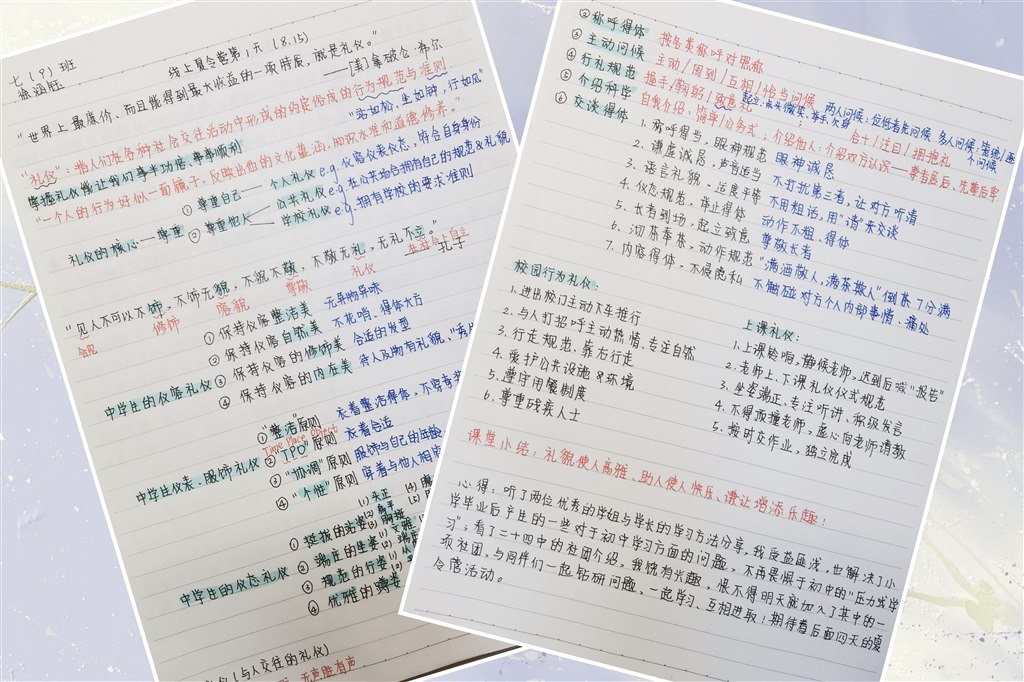 七(9)班
徐涵胜
线上夏令营第1天(8.15)
"世界上最廉价、而且能得到最大收益的一项特质，就是礼仪。"
——[美]拿破仑·希尔
"礼仪"：指人们在各种社会交往活动中形成的约定俗成的行为规范与准则
掌握礼仪能让我们事半功倍,事事顺利
"站如松，坐如钟，行如风"
"一个人的行为好似一面镜子，反映出他的文化蕴涵,知识水准和道德修养。"
礼仪的核心—尊重
① 尊重自己——个人礼仪 e.g. 仪容仪表仪态，符合自身身份
② 尊重他人
公共礼仪 e.g. 在公共场合拥有自己的规范&礼貌
学校礼仪 e.g. 拥有学校的要求准则
"见人不可以不饰,不饰无貌,不貌不敬,不敬无礼,无礼不立。"
——孔子
会见 修饰 容貌 尊敬 礼仪
中学生的仪容礼仪
① 保持仪容整洁美 无异物异味
② 保持仪容自然美 不花哨、得体大方
③ 保持仪容的修饰美 合适的发型
④ 保持仪容的内在美
中学生仪表·服饰礼仪
①"整洁"原则 衣着整洁得体,
Time Place Object
②"TPO"原则 衣着合适
③"协调"原则 服饰与自己的年龄
④"个性"原则 穿着与他人相
中学生的仪态礼仪
① 挺拔的站姿 (1)头正
② 端庄的坐姿
③ 规范的行姿
④ 优雅的蹲姿
(与人交往的礼仪)
无声胜有声
②称呼得体 按各类称呼对照称
③主动问候 主动/周到/互相/恰当问候
④行礼规范 握手/鞠躬/致意
起立、点头微笑、举手、欠身
两人问候：位低者先问候
⑤介绍科学 自我介绍：简单/公务式；介绍他人：介绍双方认识——尊者居后、先尊后卑
合十/注目/拥抱礼
⑥交谈得体
1. 称呼得当，眼神规范 眼神诚恳
2. 谦虚诚恳，声音适当 不打扰第三者，让对方听清
3. 语言礼貌，适度平等 不用粗话，用"请"来交谈
4. 仪态规范，举止得体 动作不粗、得体
5. 长者到场，起立致意 尊敬长者
6. 沏茶奉茶，动作规范 "满酒敬人,满茶欺人"倒茶7分满
7. 内容得体，不侵隐私 不触碰对方个人内部事情、痛处
校园行为礼仪：
1.进出校门主动下车推行
2.与人打招呼主动热情、专注自然
3.行走规范、靠右行走
4.爱护公共设施&环境
5.遵守用餐制度
6.尊重残疾人士
上课礼仪：
1.上课铃响，静候老师，迟到后喊"报告"
2.老师上、下课礼仪仪式规范
3.坐姿端正、专注听讲、积极发言
4.不得顶撞老师，虚心向老师请教
5.按时交作业，独立完成
课堂小结：礼貌使人高雅、助人使人快乐、谦让增添乐趣！
心得：听了两位优秀的学姐与学长的学习方法分享，我受益匪浅，也解决了小
学毕业后产生的一些对于初中学习方面的问题，不再畏惧于初中的"压力或学
习"；看了二十四中的社团介绍，我饶有兴趣，恨不得明天就加入了其中的一
项社团，与同伴们一起钻研问题，一起学习、互相进取！期待着后面四天的夏
令营活动。